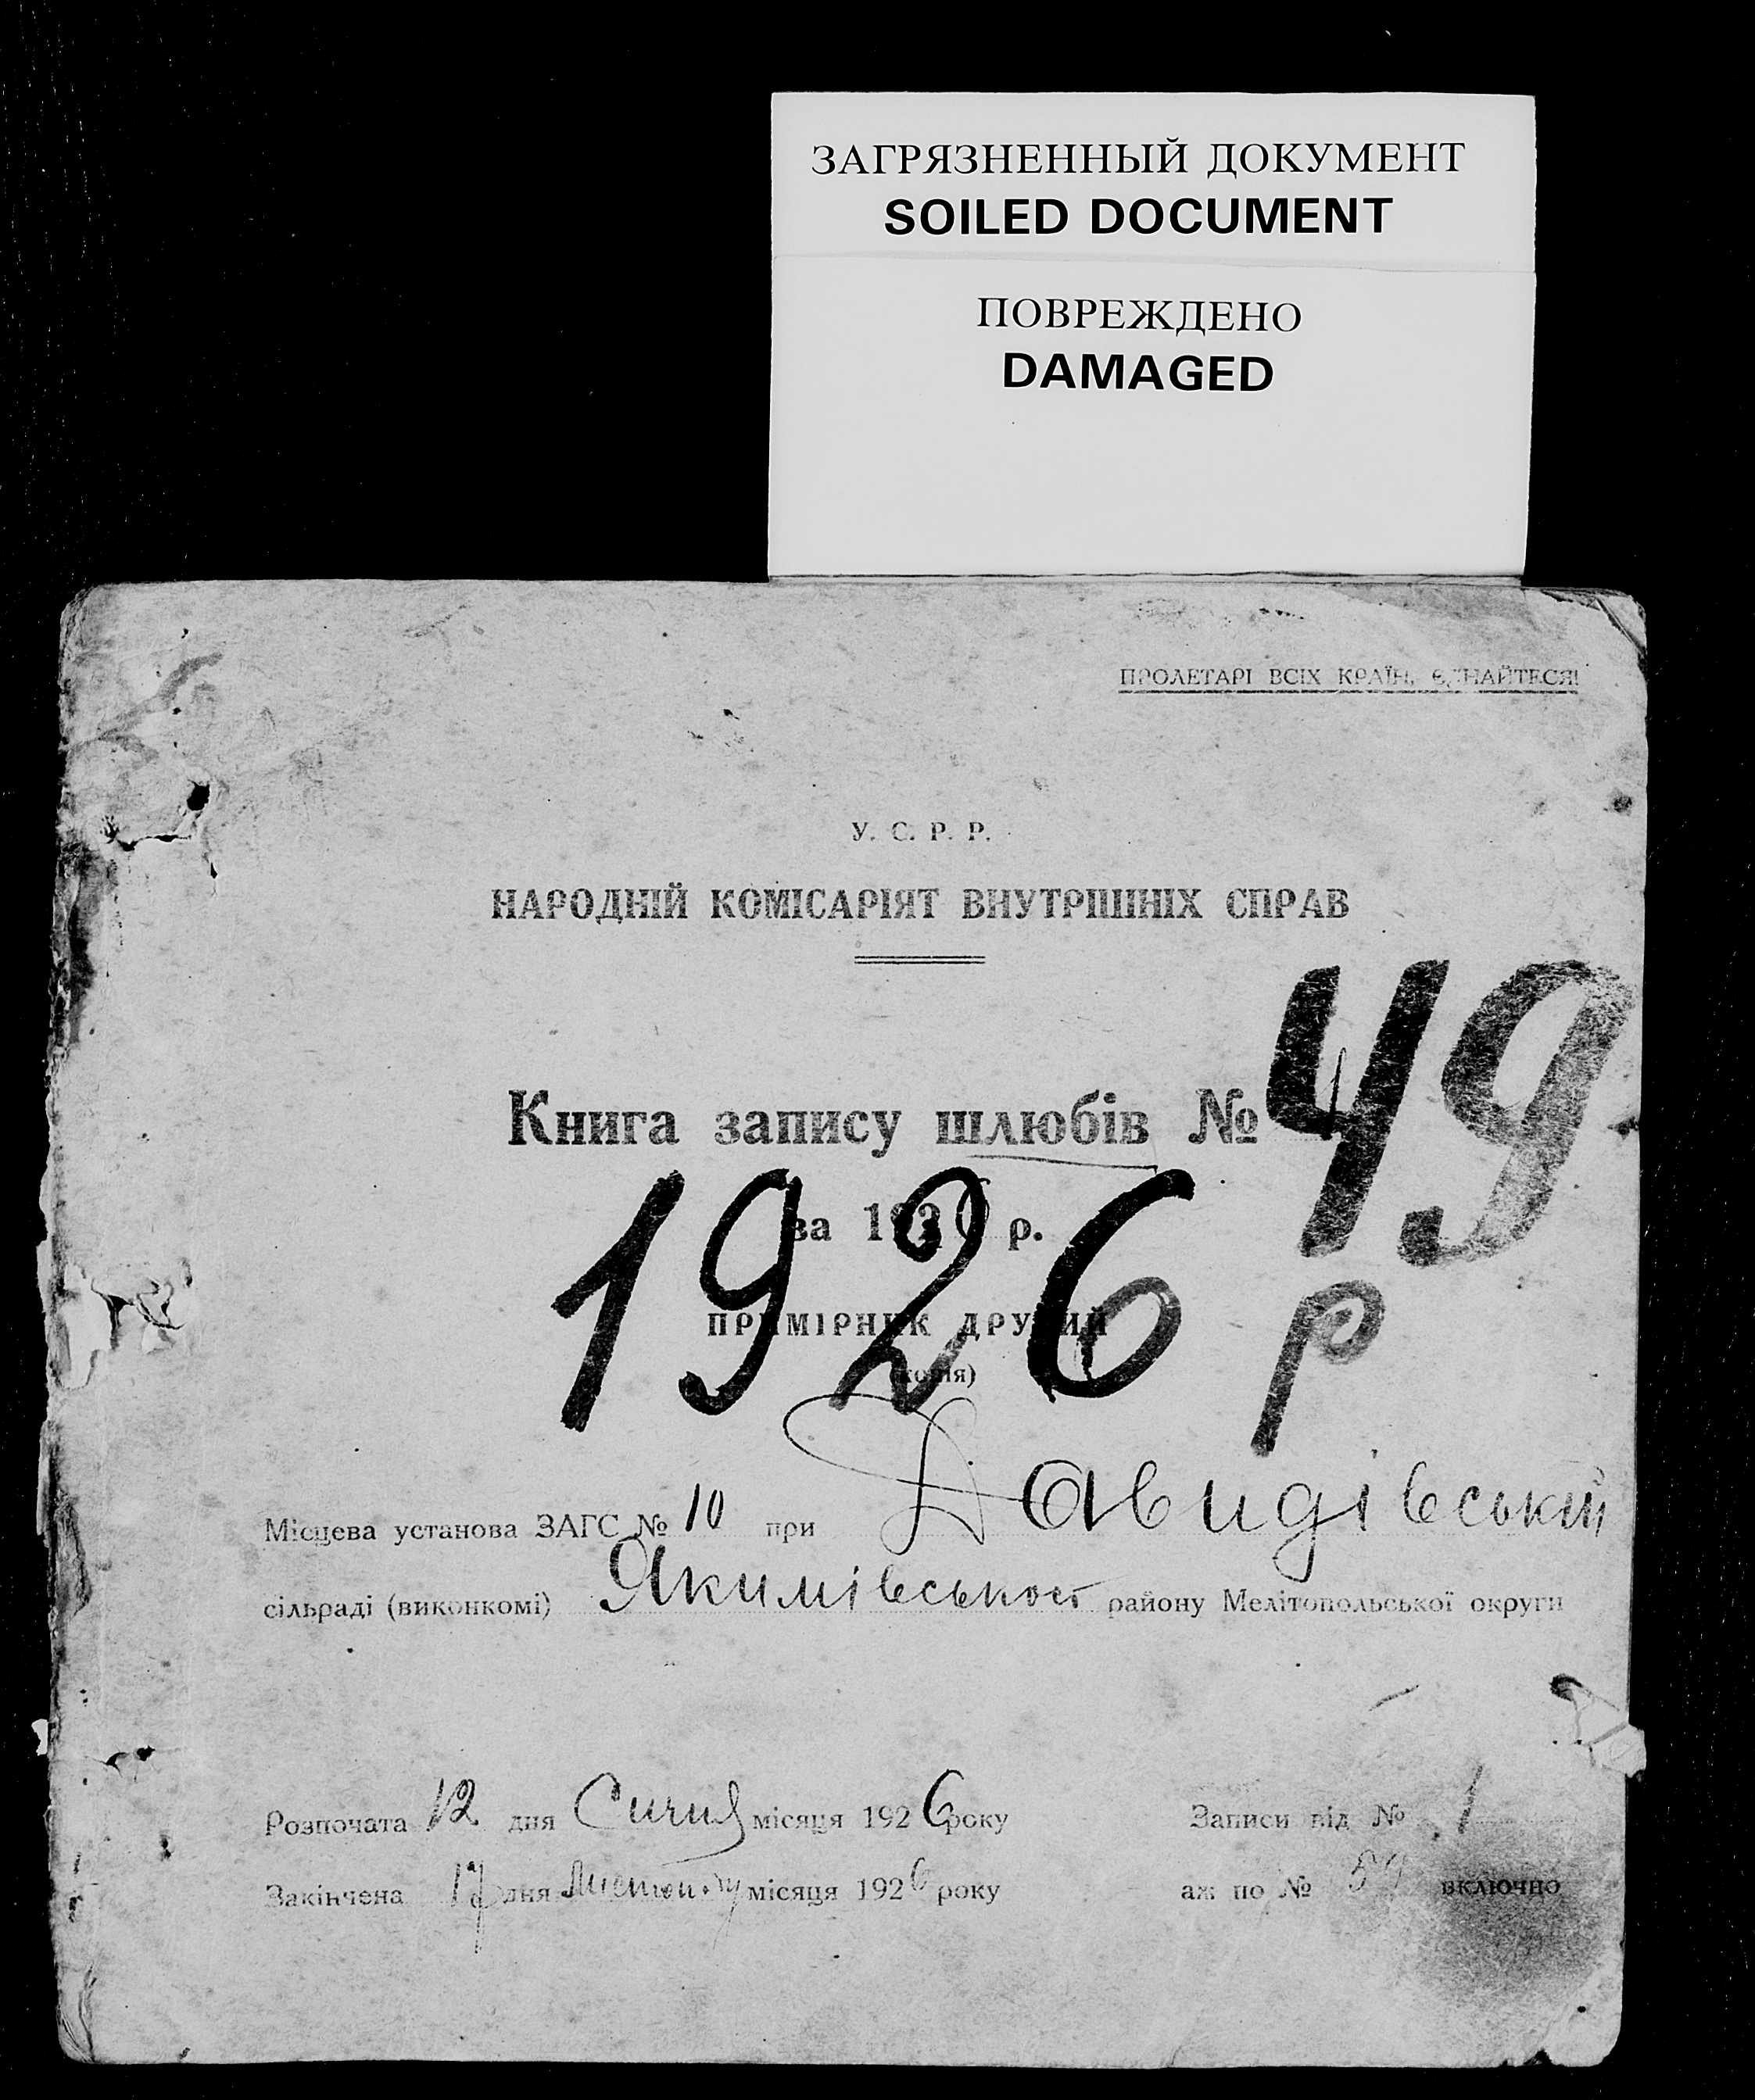 ЗАГРЯЗНЕННЫЙ ДОКУМЕНТ
SOILED DOCUMENT
ПОВРЕЖДЕНО
DAMAGED
ПРОЛЕТАРІ ВСІХ КРАЇН, ЄДНАЙТЕСЯ!
У. С. Р. Р.
НАРОДНІЙ КОМІСАРІЯТ ВНУТРІШНІХ СПРАВ
Книга запису шлюбів № 49
за 1926 р.
1926 р
ПРИМІРНИК ДРУГИЙ
(копія)
Місцева установа ЗАГС № 10 при Давидівській
сільраді (виконкомі) Якимівського району Мелітопольської округи
Розпочата 12 дня Січня місяця 1926 року Записи від № 1
Закінчена 17 дня Листопаду місяця 1926 року аж по № включно